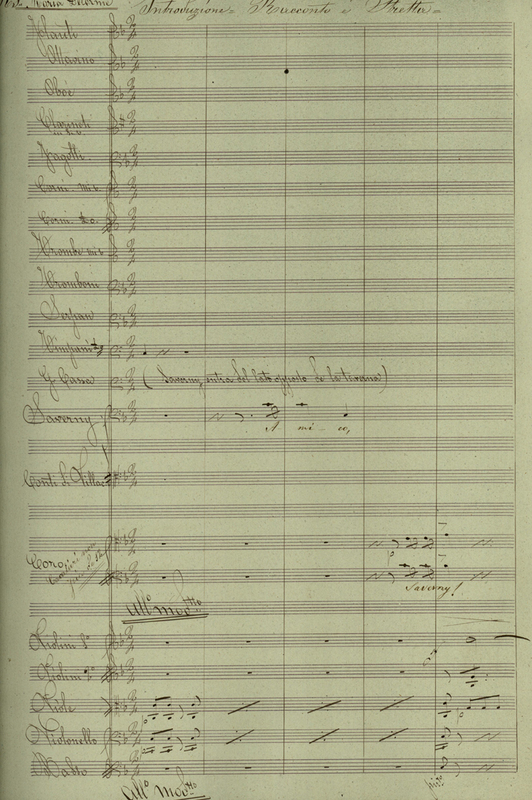 Introduzione= Racconto e Stretta=
Flauti
Ottavino
Oboè
Clarineti
Fagotti
Corni
Corni
Trombe
Tromboni
Serpan
Timpani
G. Cassa
( Saverny, entra del lato opposto
Saverny
A mi-co,
Coro
Saverny!
All.º mod.tto
Violini 1º
Violini 2º
Viole
Violoncello
Basso
All.º mod.tto